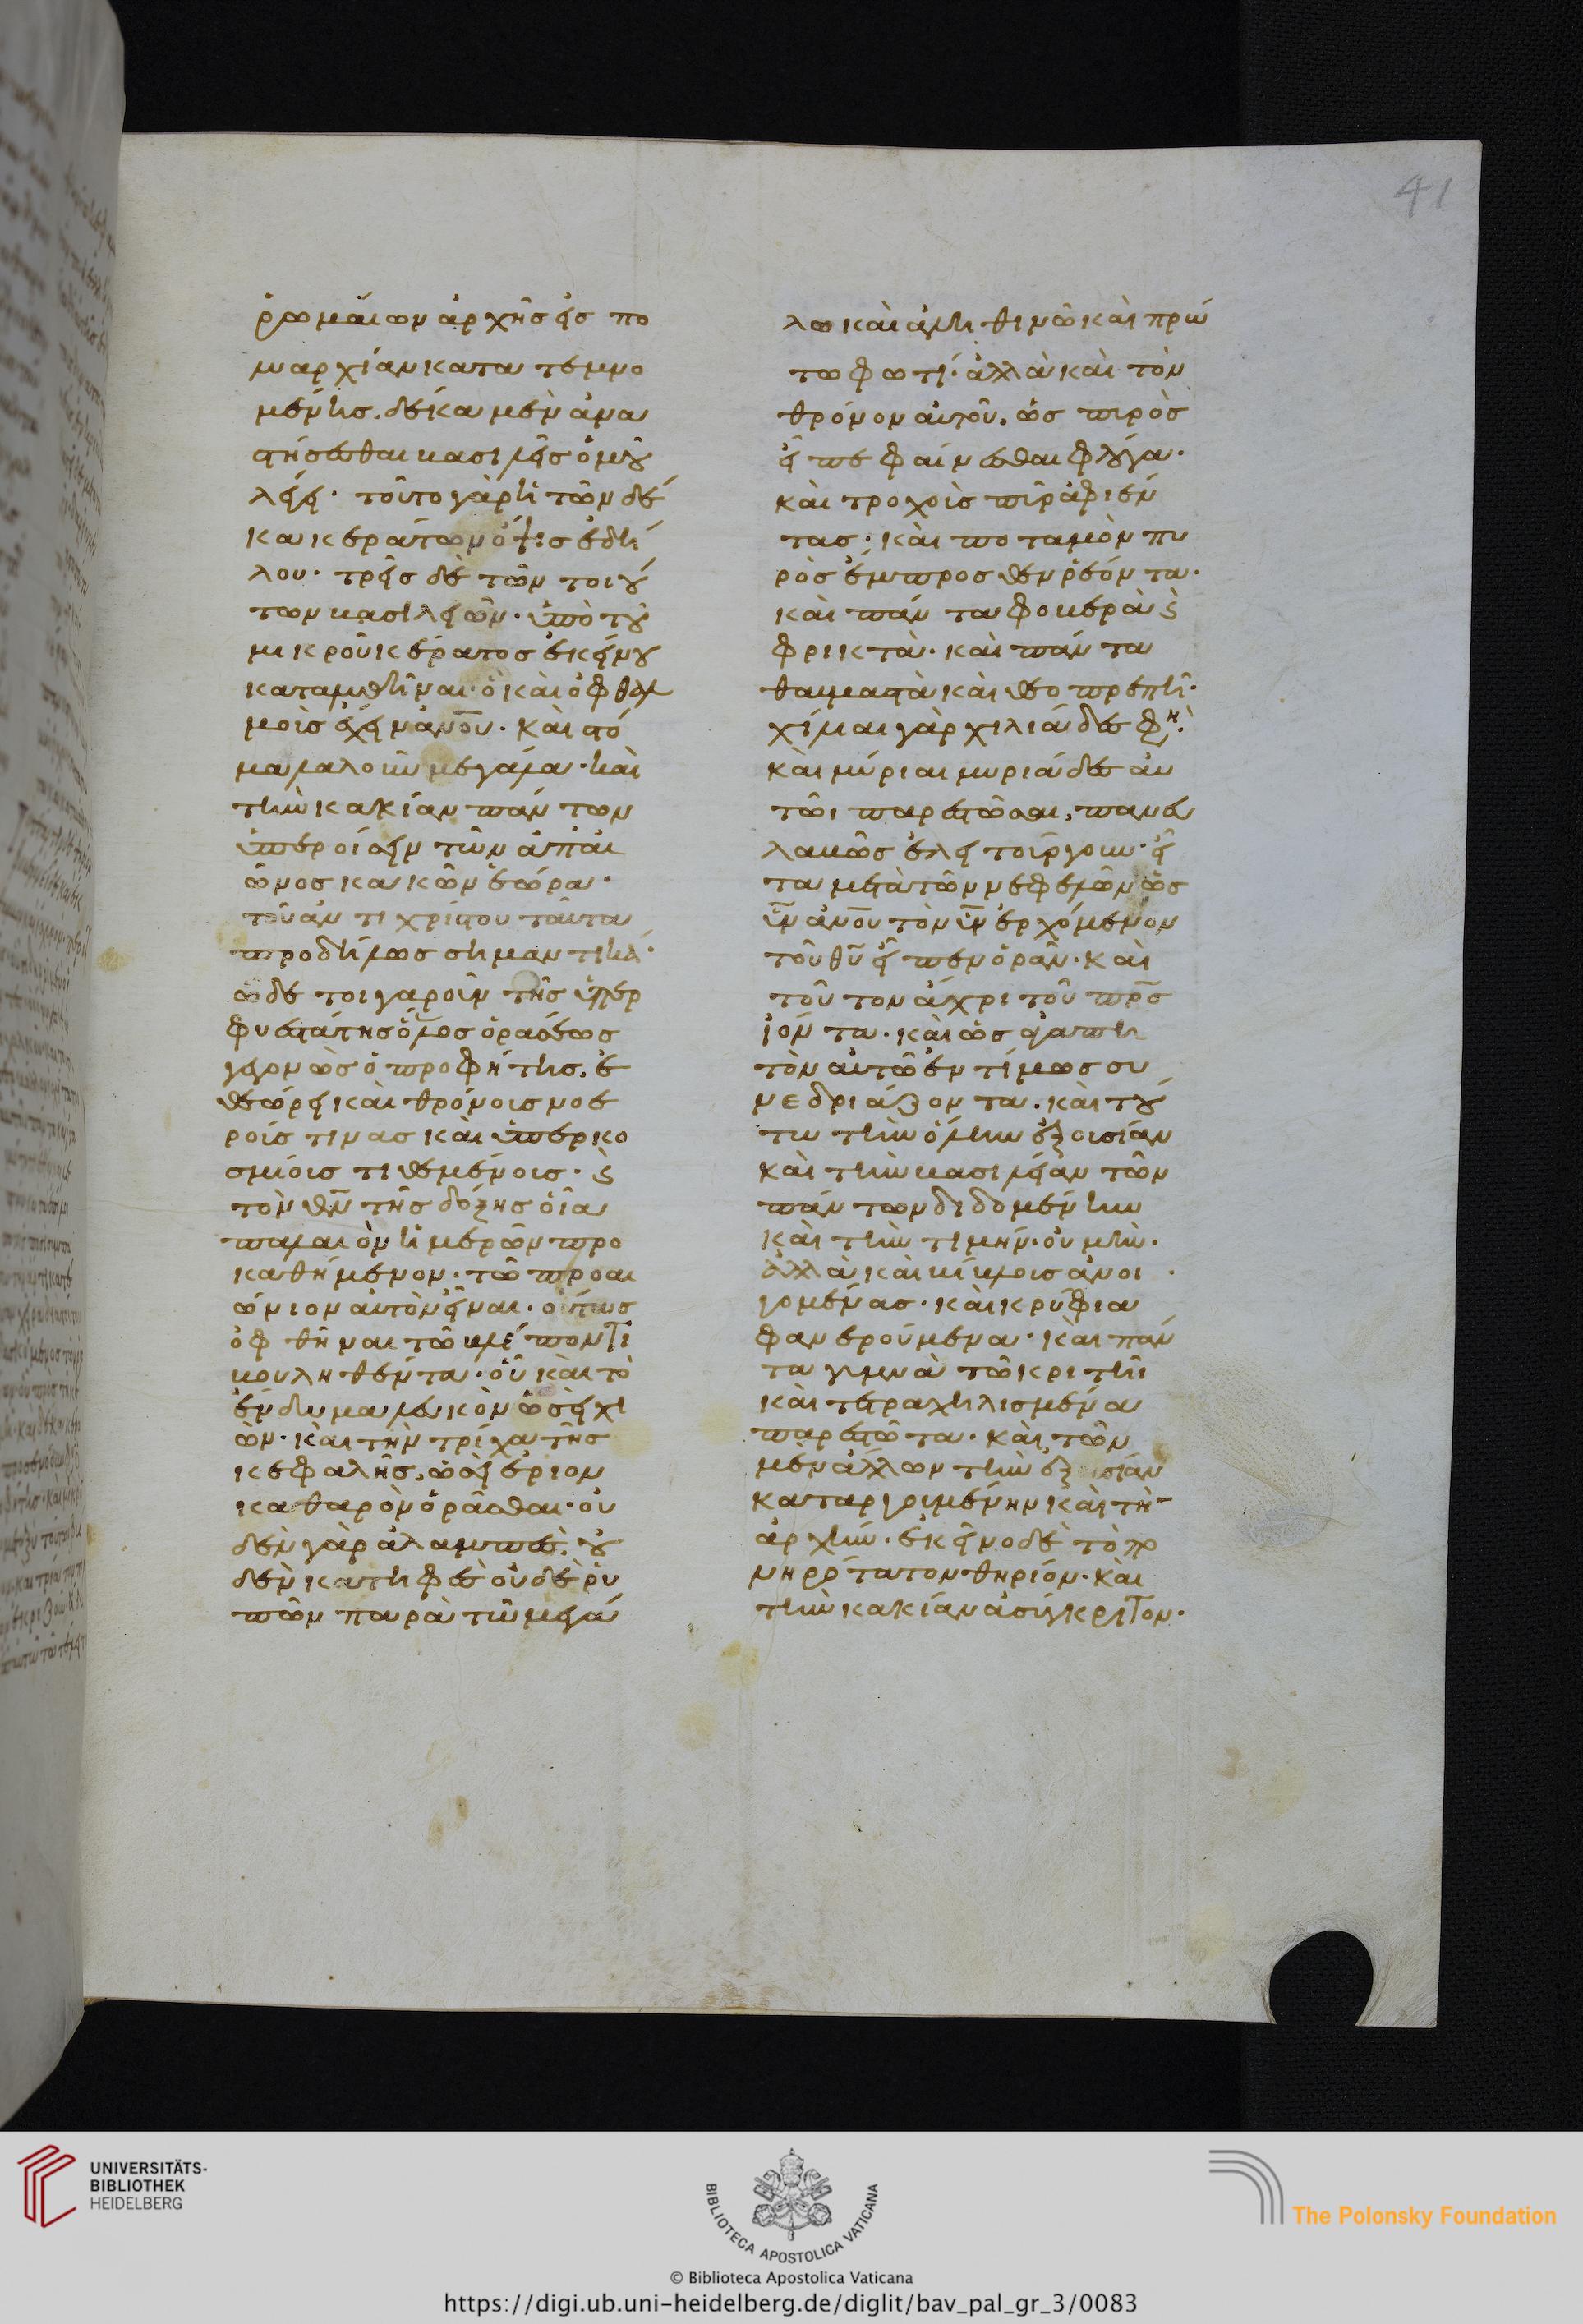 41
ῥωμαίων ἀρχῆς εἰς πο
λυαρχίαν κατα τεμνο
μένης. δέκα μὲν ἀνα
στήσεσθαι βασιλεῖς ὁμοῦ
λέγει· τοῦτο γὰρ ἡ τῶν δέ
κα κεράτων ὄψις ἐδή
λου· τρεῖς δὲ τῶν τοιού
των βασιλειῶν· ὑπὸ τοῦ
μικροῦ κέρατος ἐκείνου
καταλυθῆναι· ὃ καὶ ὀφθαλ
μοὺς εἶχεν ἀνου· καὶ στό
μα λαλοῦν μεγάλα· καὶ
τὴν κακίαν πάν των
ὑπεροῖσειν τῶν ἀπ αι
ῶνος κακῶν ἑώρα·
τοῦ ἀν τι χρίστου ταῦτα
προδήλως σημαντικά·
ὧδε τοιγαροῦν τῆς ὑπερ
φυεστάτης ὅλος ὁράσεως
γεγονὼς ὁ προφήτης. ἐ
θεώρει καὶ θρόνοις νοε
ροῖς τινας καὶ ὑπερκο
σμίοις τιθεμένοις· καὶ
τὸν θν τῆς δόξης οἷα
παλαιὸν ἡμερῶν προ
καθήμενον· τῶ προαι
ώνιον αὐτὸν εἶναι· οὕτως
ὀφθῆναι τῶ βλέποντι
βουληθέντα· οὗ καὶ τὸ
ἔνδυμα λευκὸν ὡσεὶ χι
ὼν· καὶ τὴν τρίχα τῆς
κεφαλῆς, ὡσεὶ ἔριον
καθαρὸν ὁρᾶσθαι· οὐ
δὲν γὰρ ἀλαμπὲς. οὐ
δὲν κατηφὲς οὐδὲ ῥυ
πῶν παρὰ τῶ μεγά
λω καὶ ἀληθινῶ καὶ πρώ
τω φωτί· ἀλλὰ καὶ τὸν
θρόνον αὐτοῦ, ὡς πυρὸς
εἶπε φαίνεσθαι φλόγα·
καὶ τροχοὺς πῦρ ἀφιέν
τας· καὶ ποταμὸν πυ
ρὸς ἔμπροσθεν ῥέοντα·
καὶ πάντα φοβερὰ καὶ
φρικτὰ· καὶ πάντα
θαυμαστὰ καὶ θεοπρεπῆ·
χίλιαι γὰρ χιλιάδες φη·
καὶ μύριαι μυριάδες αὐ
τῶι παρεστῶσαι, παν
λαβῶς ἐλειτούργουν· εἶ
τα μετὰ τῶν νεφελῶν ὡς
υν ανου τὸν υν ἐρχόμενον
τοῦ θυ εἶπεν ὁρᾶν· καὶ
τοῦτον ἄχρι τοῦ πρς
ἰόντα· καὶ ὡς ἀγαπη
τὸν αὐτῶ ἐντίμως συ
νεδριάζοντα. καὶ τού
τω τὴν ὅλην ἐξουσίαν
καὶ τὴν βασιλείαν τῶν
πάντων διδομένην
καὶ τὴν τιμήν· οὐ μὴν·
ἀλλὰ καὶ βίβλους ἀνοι
γομένας· καὶ κρύφια
φανερούμενα· καὶ πάν
τα γυμνὰ τῶ κριτῆ
καὶ τετραχηλισμένα
παρεστῶτα· καὶ τῶν
μὲν ἄλλων τὴν ἐξουσίαν
καταργουμένην καὶ τὴν
ἀρχὴν· ἐκεῖνο δὲ τὸ πο
νηρότατον θηρίον· καὶ
τὴν κακίαν ἀσύγκριτον·
UNIVERSITÄTS-
BIBLIOTHEK
HEIDELBERG
BIBLIOTECA APOSTOLICA VATICANA
The Polonsky Foundation
© Biblioteca Apostolica Vaticana
https://digi.ub.uni-heidelberg.de/diglit/bav_pal_gr_3/0083